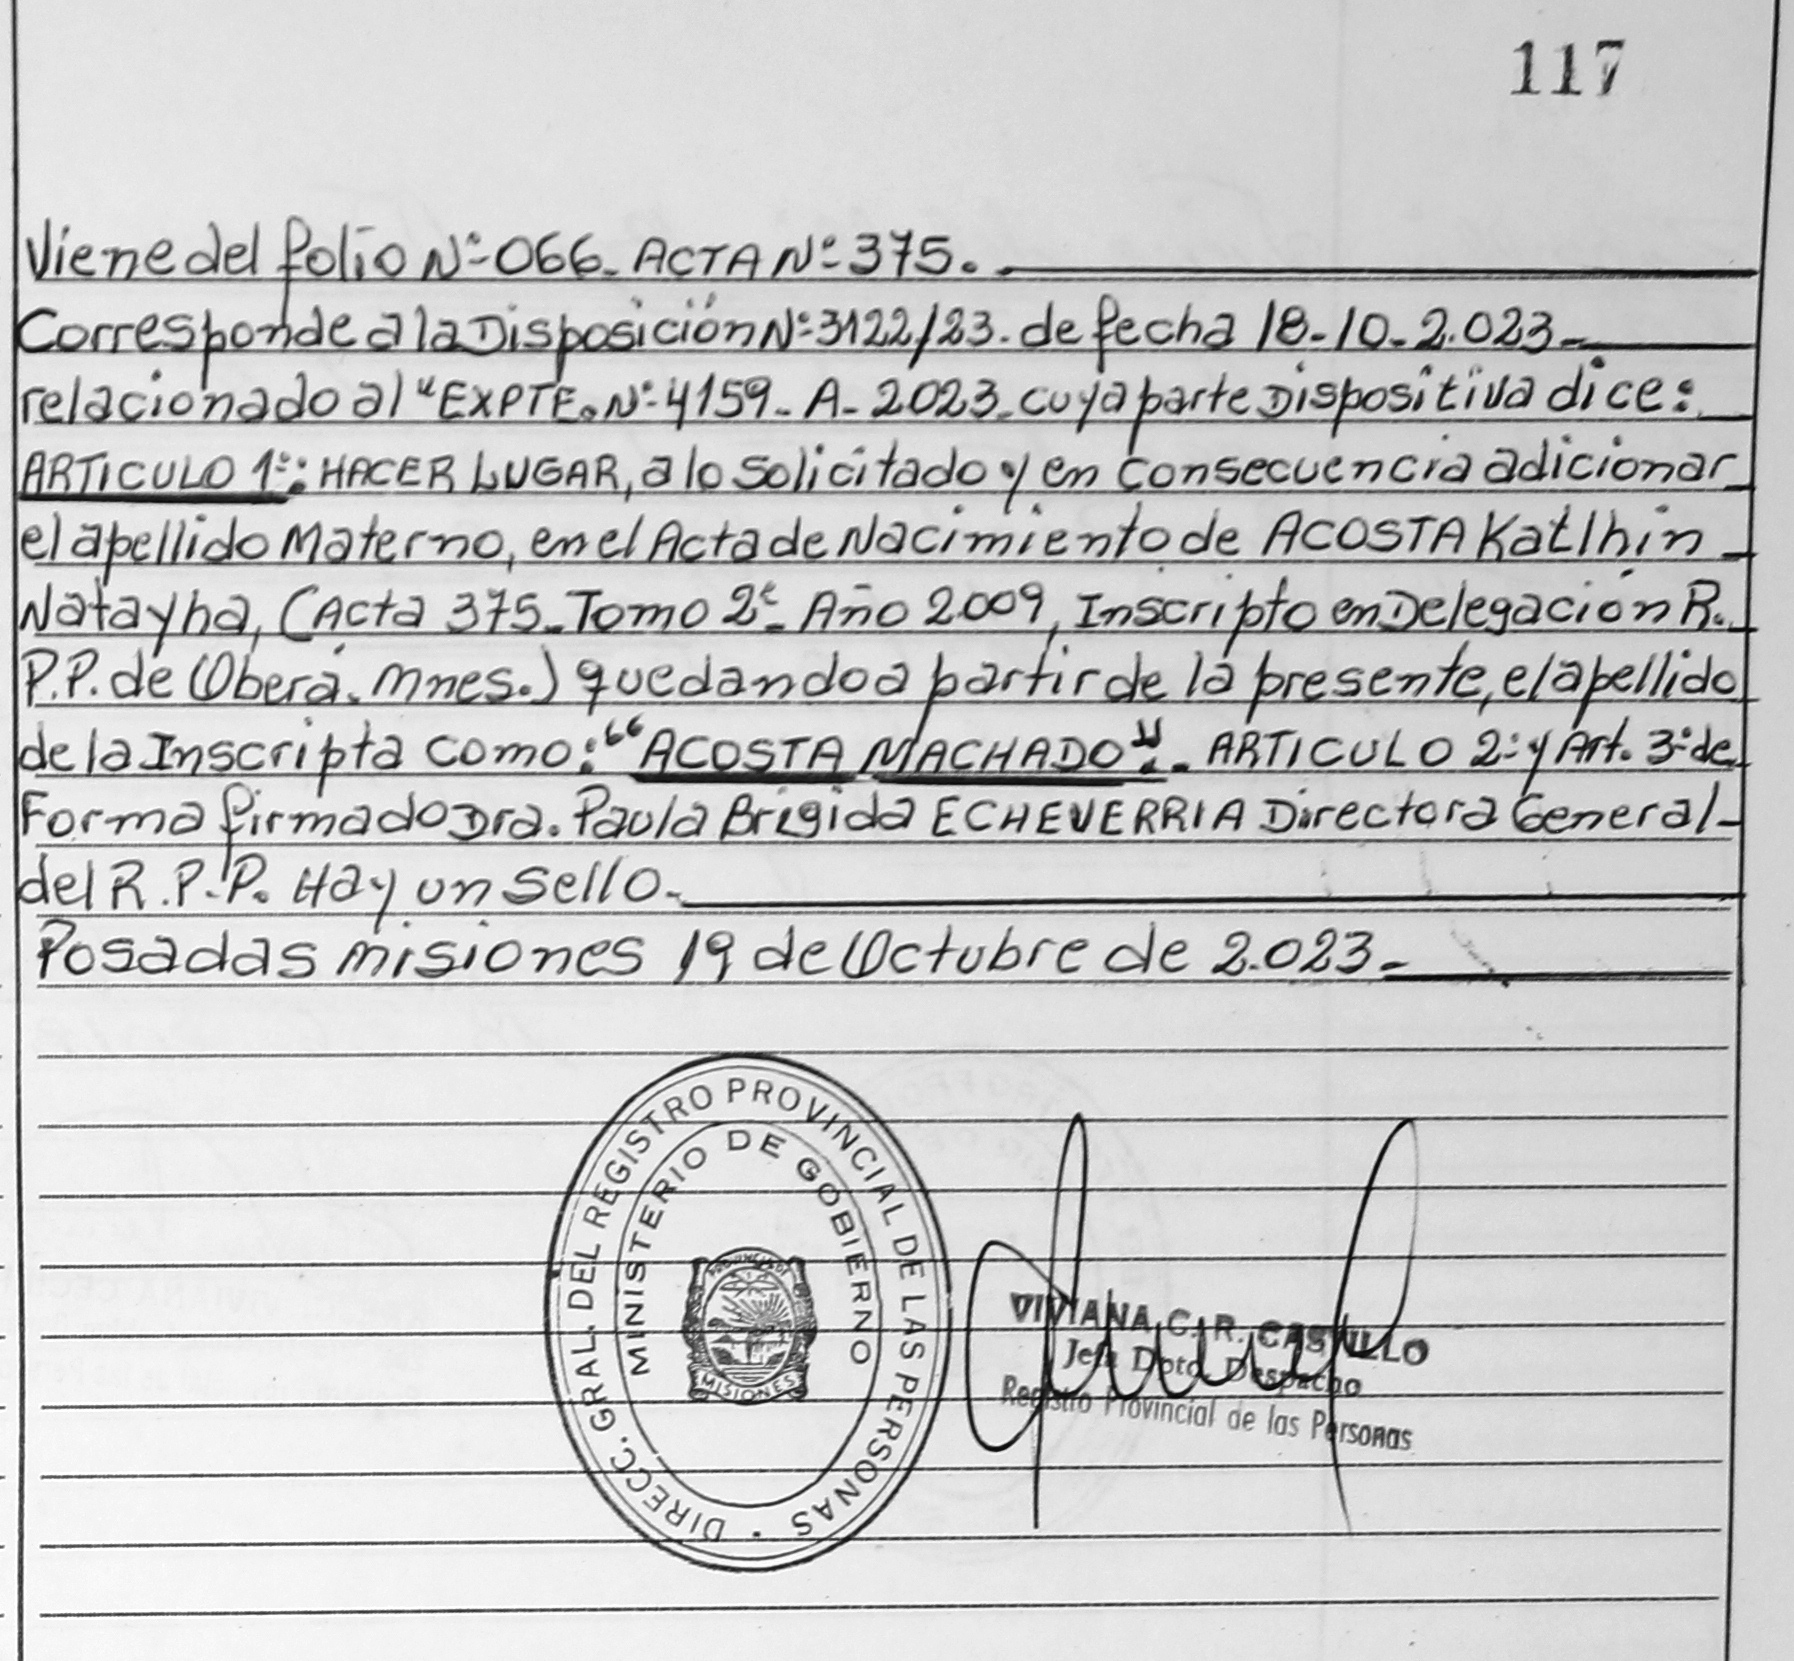 117
Viene del folio Nº 066. ACTA Nº 375.
Corresponde a la Disposición Nº 3122/23. de fecha 18-10-2.023-
relacionado al "EXPTE. Nº 4159-A-2023. cuya parte Dispositiva dice:
ARTICULO 1º: HACER LUGAR, a lo solicitado y en consecuencia adicionar
el apellido Materno, en el Acta de Nacimiento de ACOSTA Katlhin
Natayha, (Acta 375-Tomo 2º- Año 2009, Inscripto en Delegación R.
P.P. de Oberá. Mnes.) quedando a partir de la presente, el apellido
de la Inscripta como: "ACOSTA MACHADO". ARTICULO 2º y Art. 3º de
Forma firmado Dra. Paula Brigida ECHEVERRIA Directora General-
del R.P.P. Hay un sello.
Posadas misiones 19 de Octubre de 2.023-
DIRECC. GRAL. DEL REGISTRO PROVINCIAL DE LAS PERSONAS
MINISTERIO DE GOBIERNO
PROVINCIA DE
MISIONES
VIVIANA C. R. CASTILLO
Jefa Dpto. Despacho
Registro Provincial de las Personas